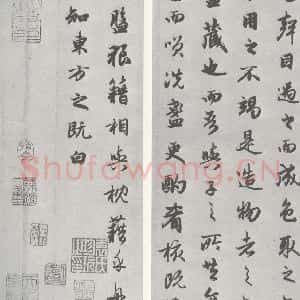 聲目遇之而成色取之
用之不竭是造物者之
藏也而吾與子之所共
而咲洗盞更酌肴核既
盤狼籍相與枕藉乎舟
知東方之既白
Shufawang.CN